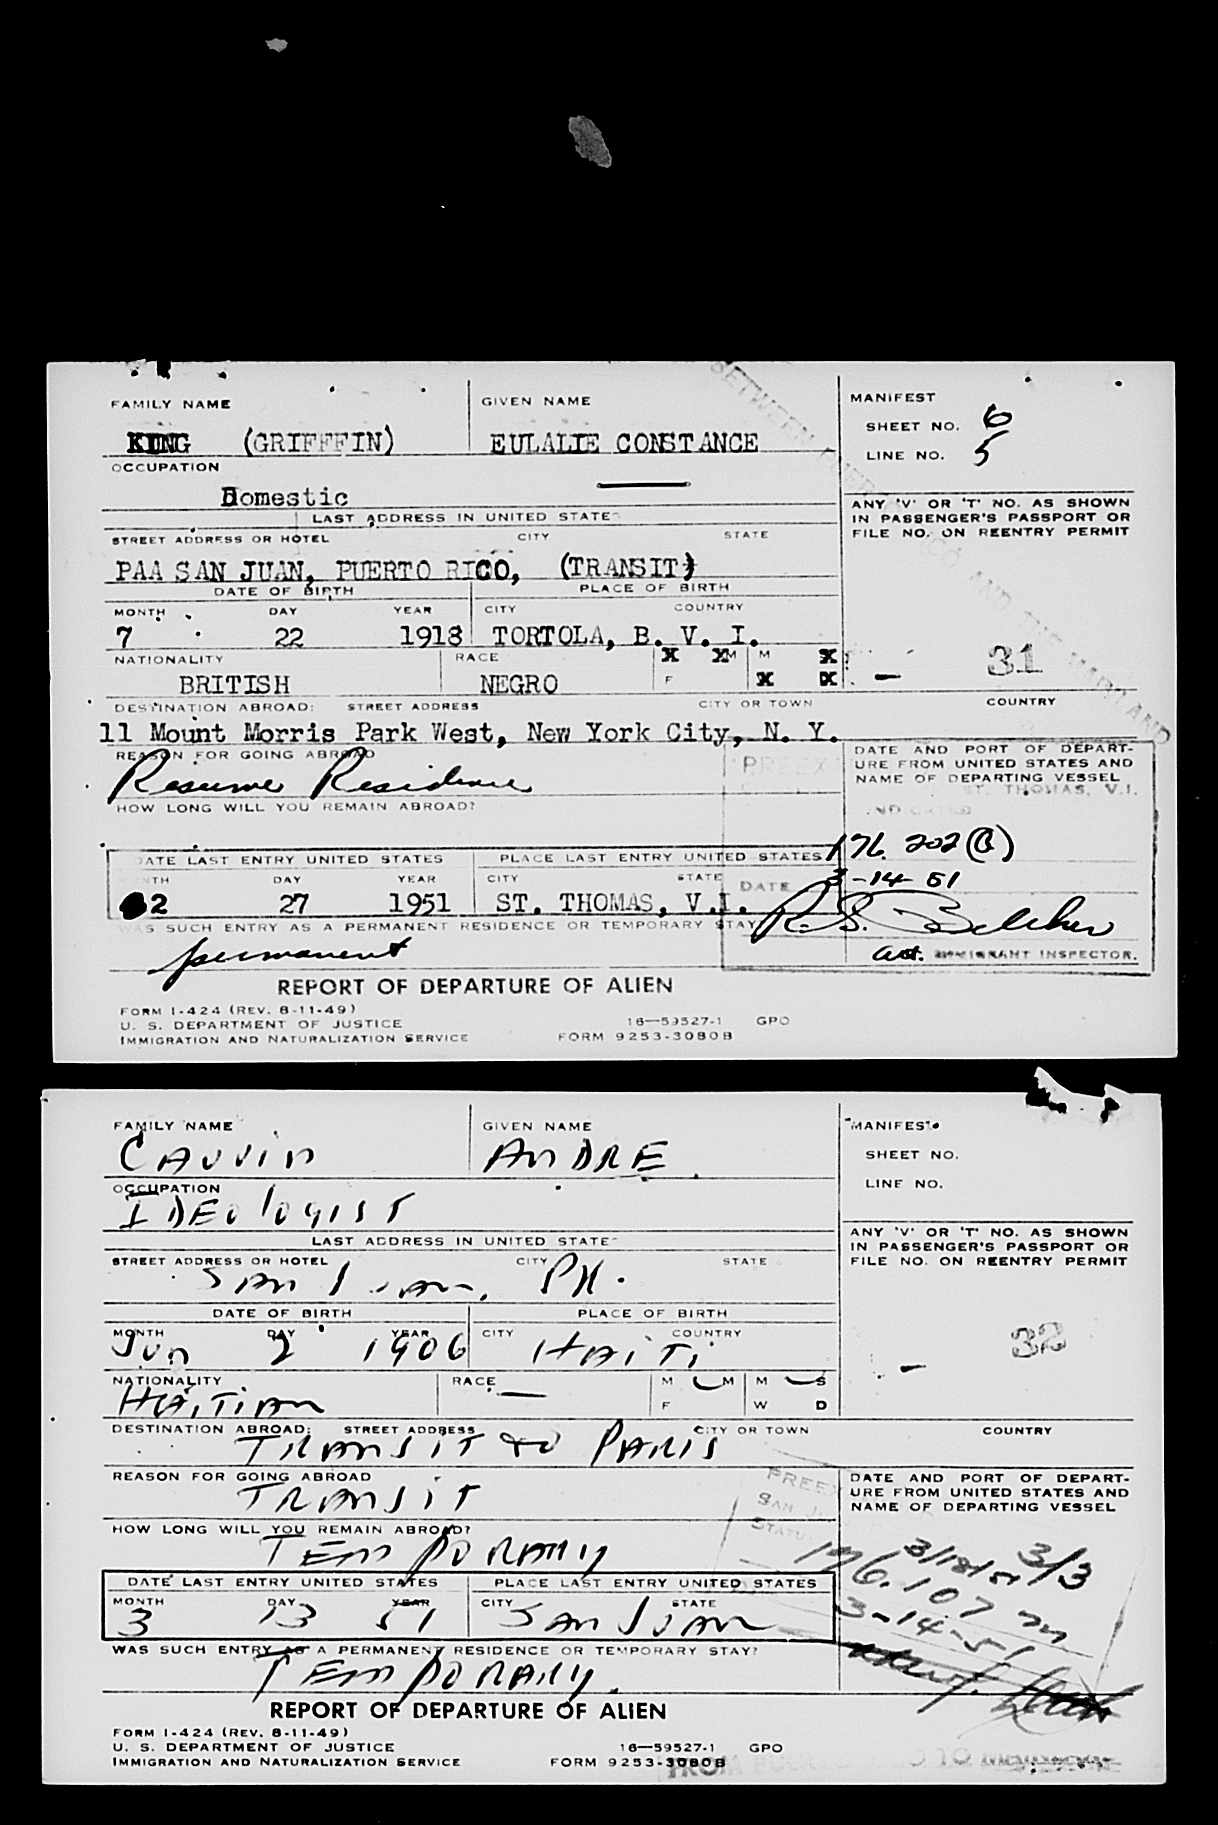 FAMILY NAME GIVEN NAME MANIFEST
KING (GRIFFFIN) EULALIE CONSTANCE SHEET NO. 6
OCCUPATION LINE NO. 5
Domestic
LAST ADDRESS IN UNITED STATES ANY 'V' OR 'T' NO. AS SHOWN
STREET ADDRESS OR HOTEL CITY STATE IN PASSENGER'S PASSPORT OR
FILE NO. ON REENTRY PERMIT
PAA SAN JUAN, PUERTO RICO, (TRANSIT)
DATE OF BIRTH PLACE OF BIRTH
MONTH DAY YEAR CITY COUNTRY
7 22 1918 TORTOLA, B. V. I.
NATIONALITY RACE X XM M X
BRITISH NEGRO F X X - 31
DESTINATION ABROAD: STREET ADDRESS CITY OR TOWN COUNTRY
11 Mount Morris Park West, New York City, N. Y.
REASON FOR GOING ABROAD DATE AND PORT OF DEPART-
Resume Residence URE FROM UNITED STATES AND
NAME OF DEPARTING VESSEL
ST. THOMAS, V.I.
HOW LONG WILL YOU REMAIN ABROAD?
176.202(B)
DATE LAST ENTRY UNITED STATES PLACE LAST ENTRY UNITED STATES
MONTH DAY YEAR CITY STATE DATE 3-14-51
2 27 1951 ST. THOMAS, V.I.
R.S. Belcher
WAS SUCH ENTRY AS A PERMANENT RESIDENCE OR TEMPORARY STAY
permanent Act. IMMIGRANT INSPECTOR.
REPORT OF DEPARTURE OF ALIEN
FORM I-424 (REV. 8-11-49)
U. S. DEPARTMENT OF JUSTICE 16—59527-1 GPO
IMMIGRATION AND NATURALIZATION SERVICE FORM 9253-3080B
FAMILY NAME GIVEN NAME MANIFEST
CAUVIN ANDRE SHEET NO.
OCCUPATION LINE NO.
IDEOLOGIST
LAST ADDRESS IN UNITED STATES ANY 'V' OR 'T' NO. AS SHOWN
STREET ADDRESS OR HOTEL CITY STATE IN PASSENGER'S PASSPORT OR
FILE NO. ON REENTRY PERMIT
San Juan, PR.
DATE OF BIRTH PLACE OF BIRTH
MONTH DAY YEAR CITY COUNTRY
Jun 2 1906 HAITI 32
NATIONALITY RACE M M M S
HAITIAN — F W D
DESTINATION ABROAD: STREET ADDRESS CITY OR TOWN COUNTRY
TRANSIT to PARIS
REASON FOR GOING ABROAD DATE AND PORT OF DEPART-
TRANSIT URE FROM UNITED STATES AND
NAME OF DEPARTING VESSEL
HOW LONG WILL YOU REMAIN ABROAD?
TEMPORARY 3/18/51 3/3
DATE LAST ENTRY UNITED STATES PLACE LAST ENTRY UNITED STATES 176.107
MONTH DAY YEAR CITY STATE
3 13 51 San Juan 3-14-51
WAS SUCH ENTRY AS A PERMANENT RESIDENCE OR TEMPORARY STAY?
TEMPORARY.
REPORT OF DEPARTURE OF ALIEN
FORM I-424 (REV. 8-11-49)
U. S. DEPARTMENT OF JUSTICE 16—59527-1 GPO
IMMIGRATION AND NATURALIZATION SERVICE FORM 9253-3080B